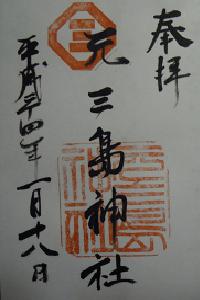 奉拝
元三島神社
平成二十四年一月十八日